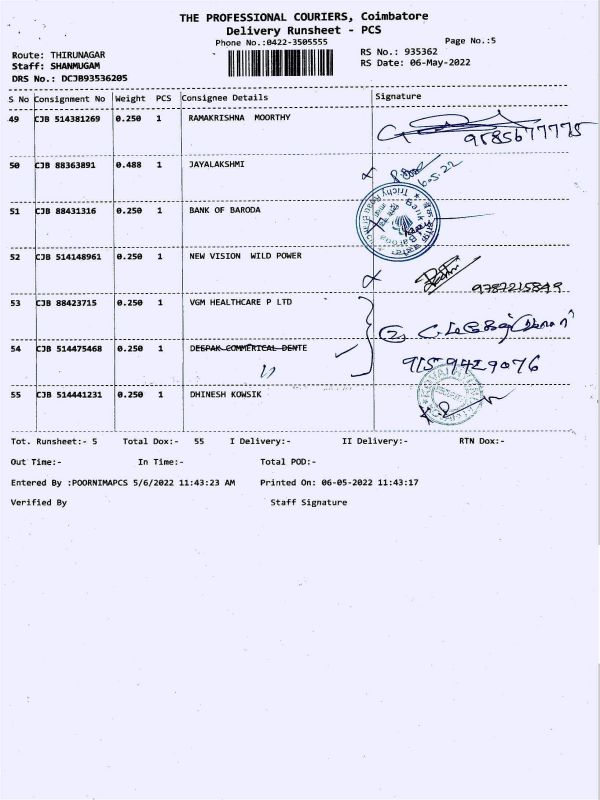 THE PROFESSIONAL COURIERS, Coimbatore
Delivery Runsheet - PCS
Phone No.:0422-3505555
Page No.:5
Route: THIRUNAGAR
RS No.: 935362
Staff: SHANMUGAM
RS Date: 06-May-2022
DRS No.: DCJB93536205
S No Consignment No Weight PCS Consignee Details Signature
49 CJB 514381269 0.250 1 RAMAKRISHNA MOORTHY
9585677775
50 CJB 88363891 0.488 1 JAYALAKSHMI
6.5.22
51 CJB 88431316 0.250 1 BANK OF BARODA
52 CJB 514148961 0.250 1 NEW VISION WILD POWER
9787215849
53 CJB 88423715 0.250 1 VGM HEALTHCARE P LTD
54 CJB 514475468 0.250 1 DEEPAK COMMERICAL DENTE
9159429076
55 CJB 514441231 0.250 1 DHINESH KOWSIK
Tot. Runsheet:- 5 Total Dox:- 55 I Delivery:- II Delivery:- RTN Dox:-
Out Time:- In Time:- Total POD:-
Entered By :POORNIMAPCS 5/6/2022 11:43:23 AM Printed On: 06-05-2022 11:43:17
Verified By Staff Signature